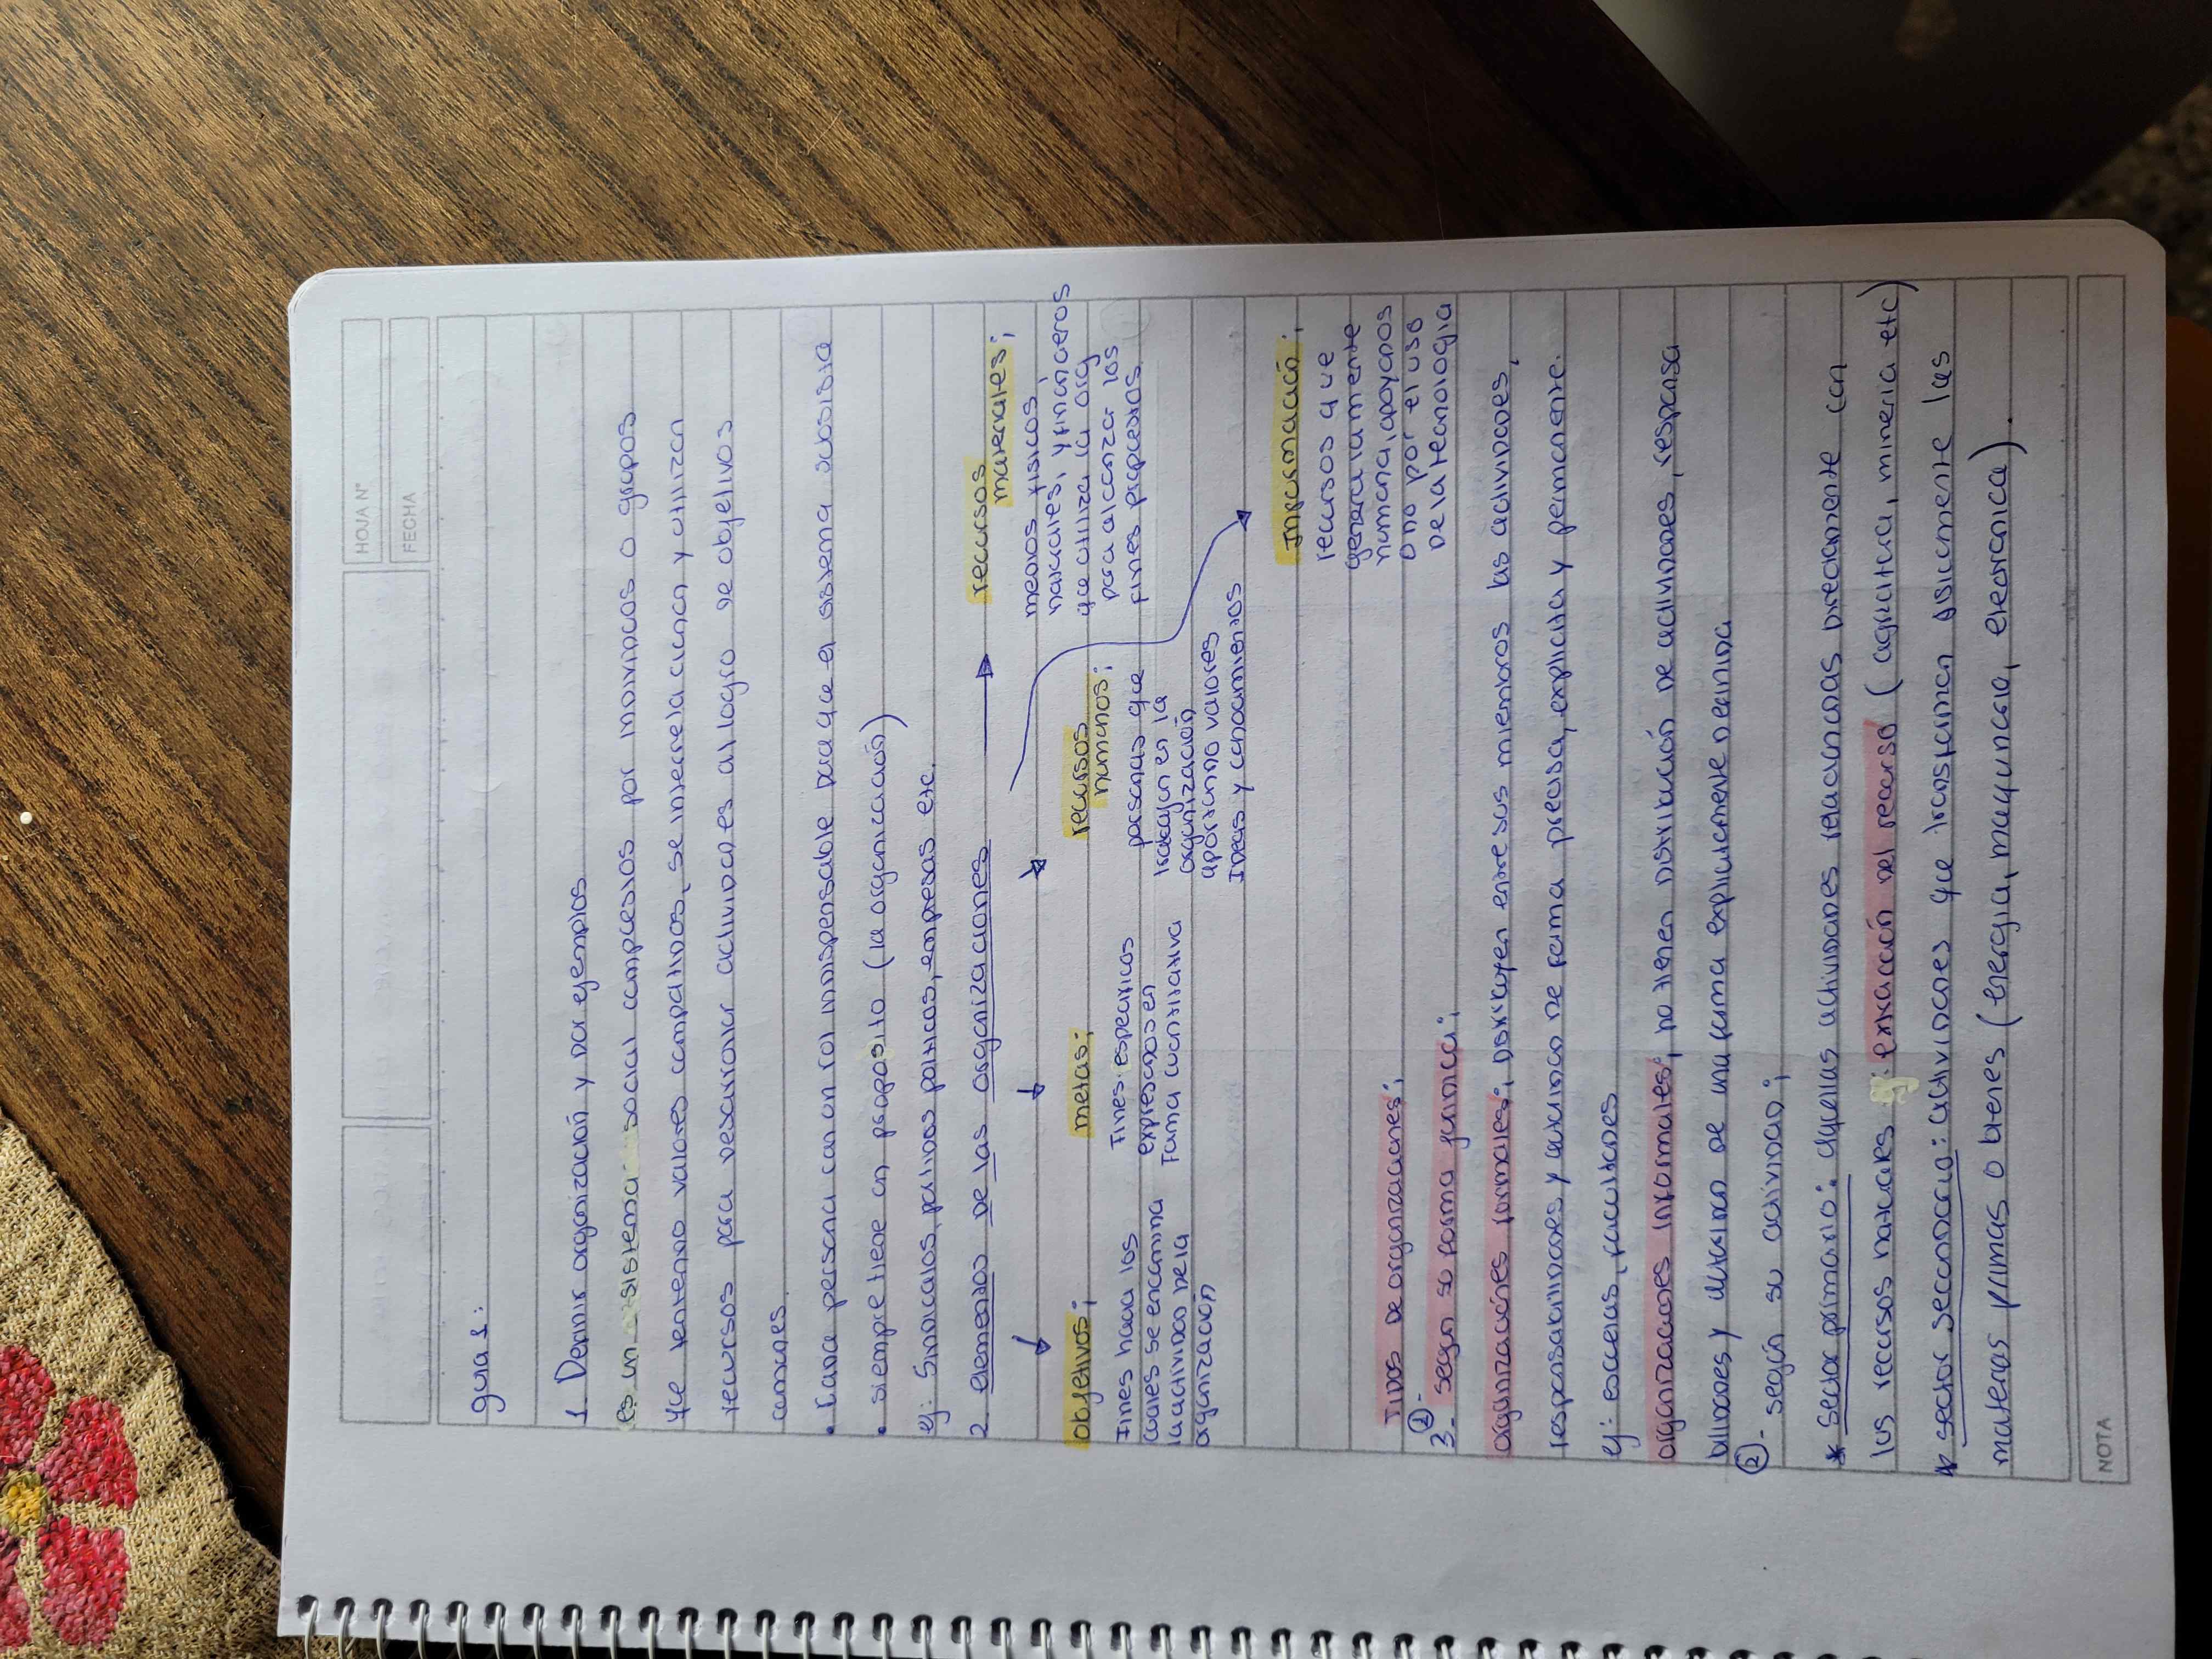 HOJA N°
FECHA
guia 1:
1 Definir organización y dar ejemplos
es un sistema social compuestos por individuos o grupos
que teniendo valores compatidos, se interrelacionan y utilizan
recursos para desarrollar actividades al logro de objetivos
comunes.
• Cada persona con un rol indispensable para que el sistema subsista
• siempre tiene un proposito (la organización)
ej: Sindicatos, partidos politicos, empresas etc.
2 elementos de las organizaciones
objetivos;
Fines hacia los
cuales se encamina
la actividad de la
organización
metas;
Fines especificos
expresados en
forma cuantitativa
recursos
humanos;
personas que
trabajan en la
organización
aportando valores
ideas y conocimientos
recursos
materiales;
medios fisicos,
naturales, y financeros
que utiliza la org
para alcanzar los
fines propuestos.
Información;
recursos que
genera la mente
humana, apoyados
o no por el uso
de la tecnologia
Tipos de organizaciones;
3- ①- segun su forma juridica;
organizaciones formales; distribuyen entre sus miembros las actividades,
responsabilidades y autoridad de forma precisa, explicita y permanente.
ej: escuelas, facultades
organizaciones informales; no tienen distribución de actividades, responsa
bilidades y autoridad de una forma explicitamente definida
②- según su actividad;
* Sector primario: aquellas actividades relacionadas directamente con
los recursos naturales ej: extracción del recurso (agricultura, mineria etc)
* sector seccundario: actividades que transforman fisicamente las
materias primas o bienes (energia, maquinaria, electronica).
NOTA